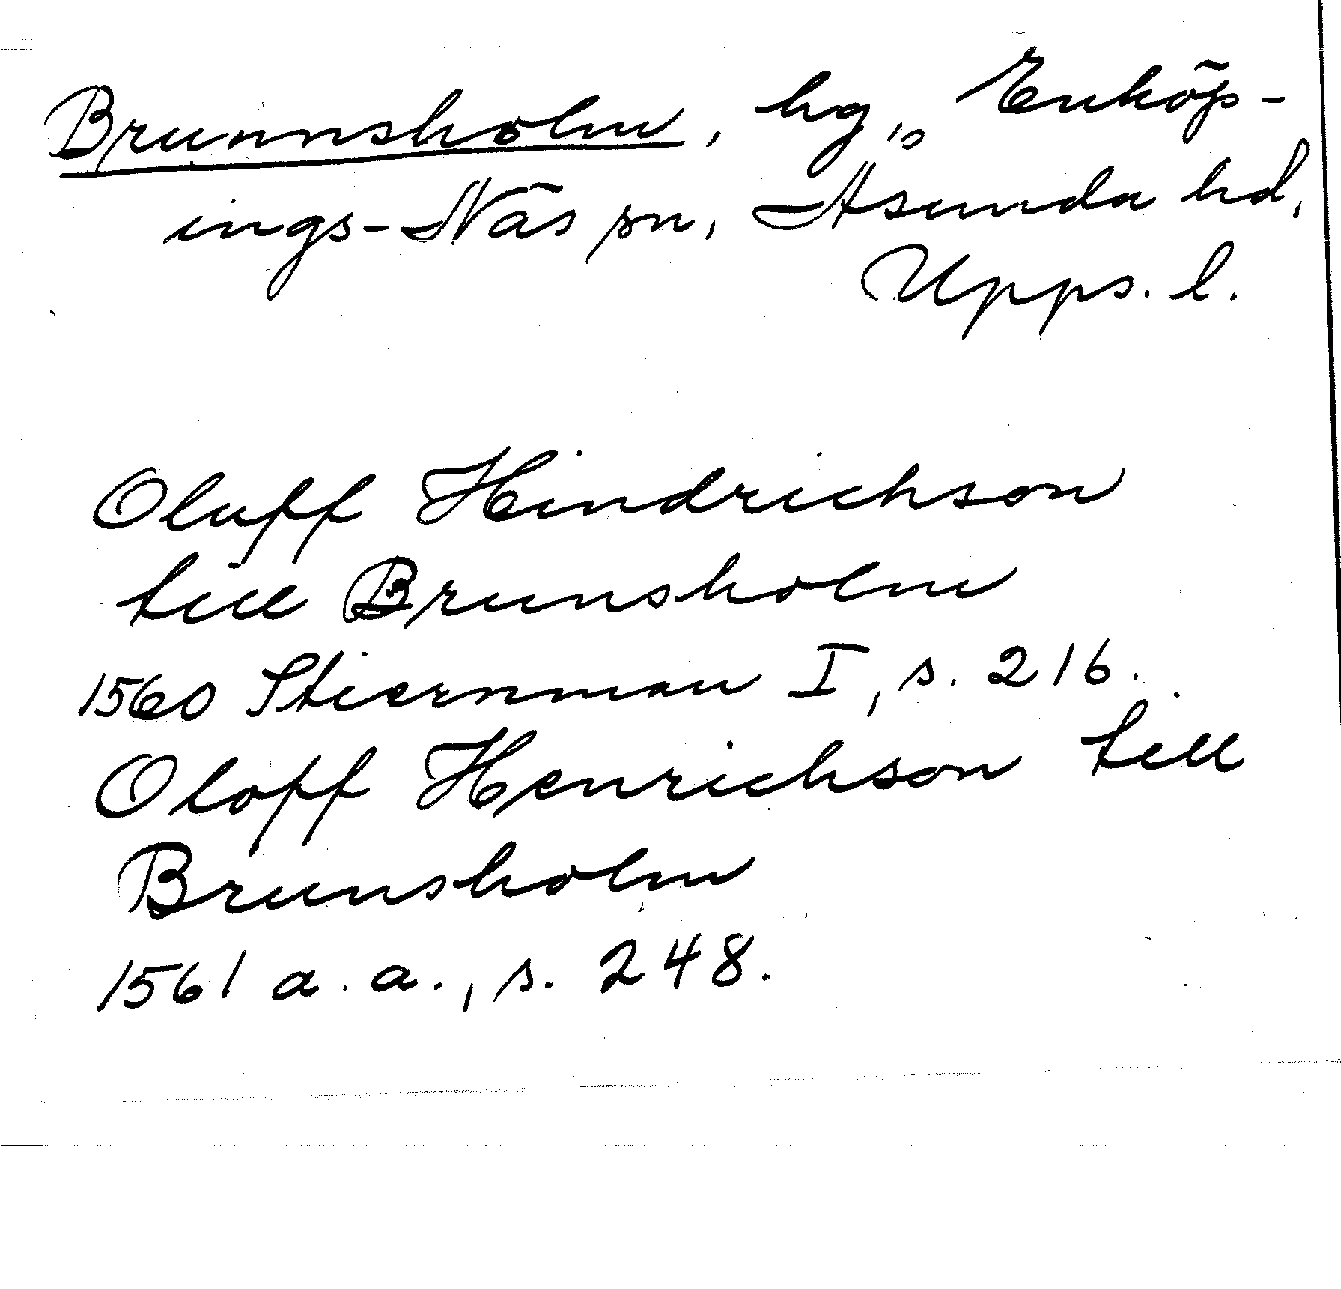 Brunnsholm, hg, Enköp-
ings-Näs sn, Åsunda hd,
Upps. l.
Oluff Hindrichson
till Brunsholm
1560 Stiernman I, s. 216.
Oloff Henrichson till
Brunsholm
1561 a. a., s. 248.